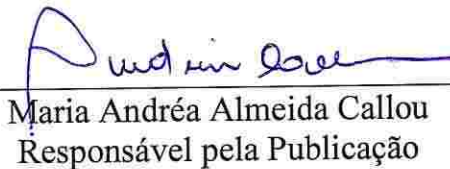 Maria Andréa Almeida Callou
Responsável pela Publicação